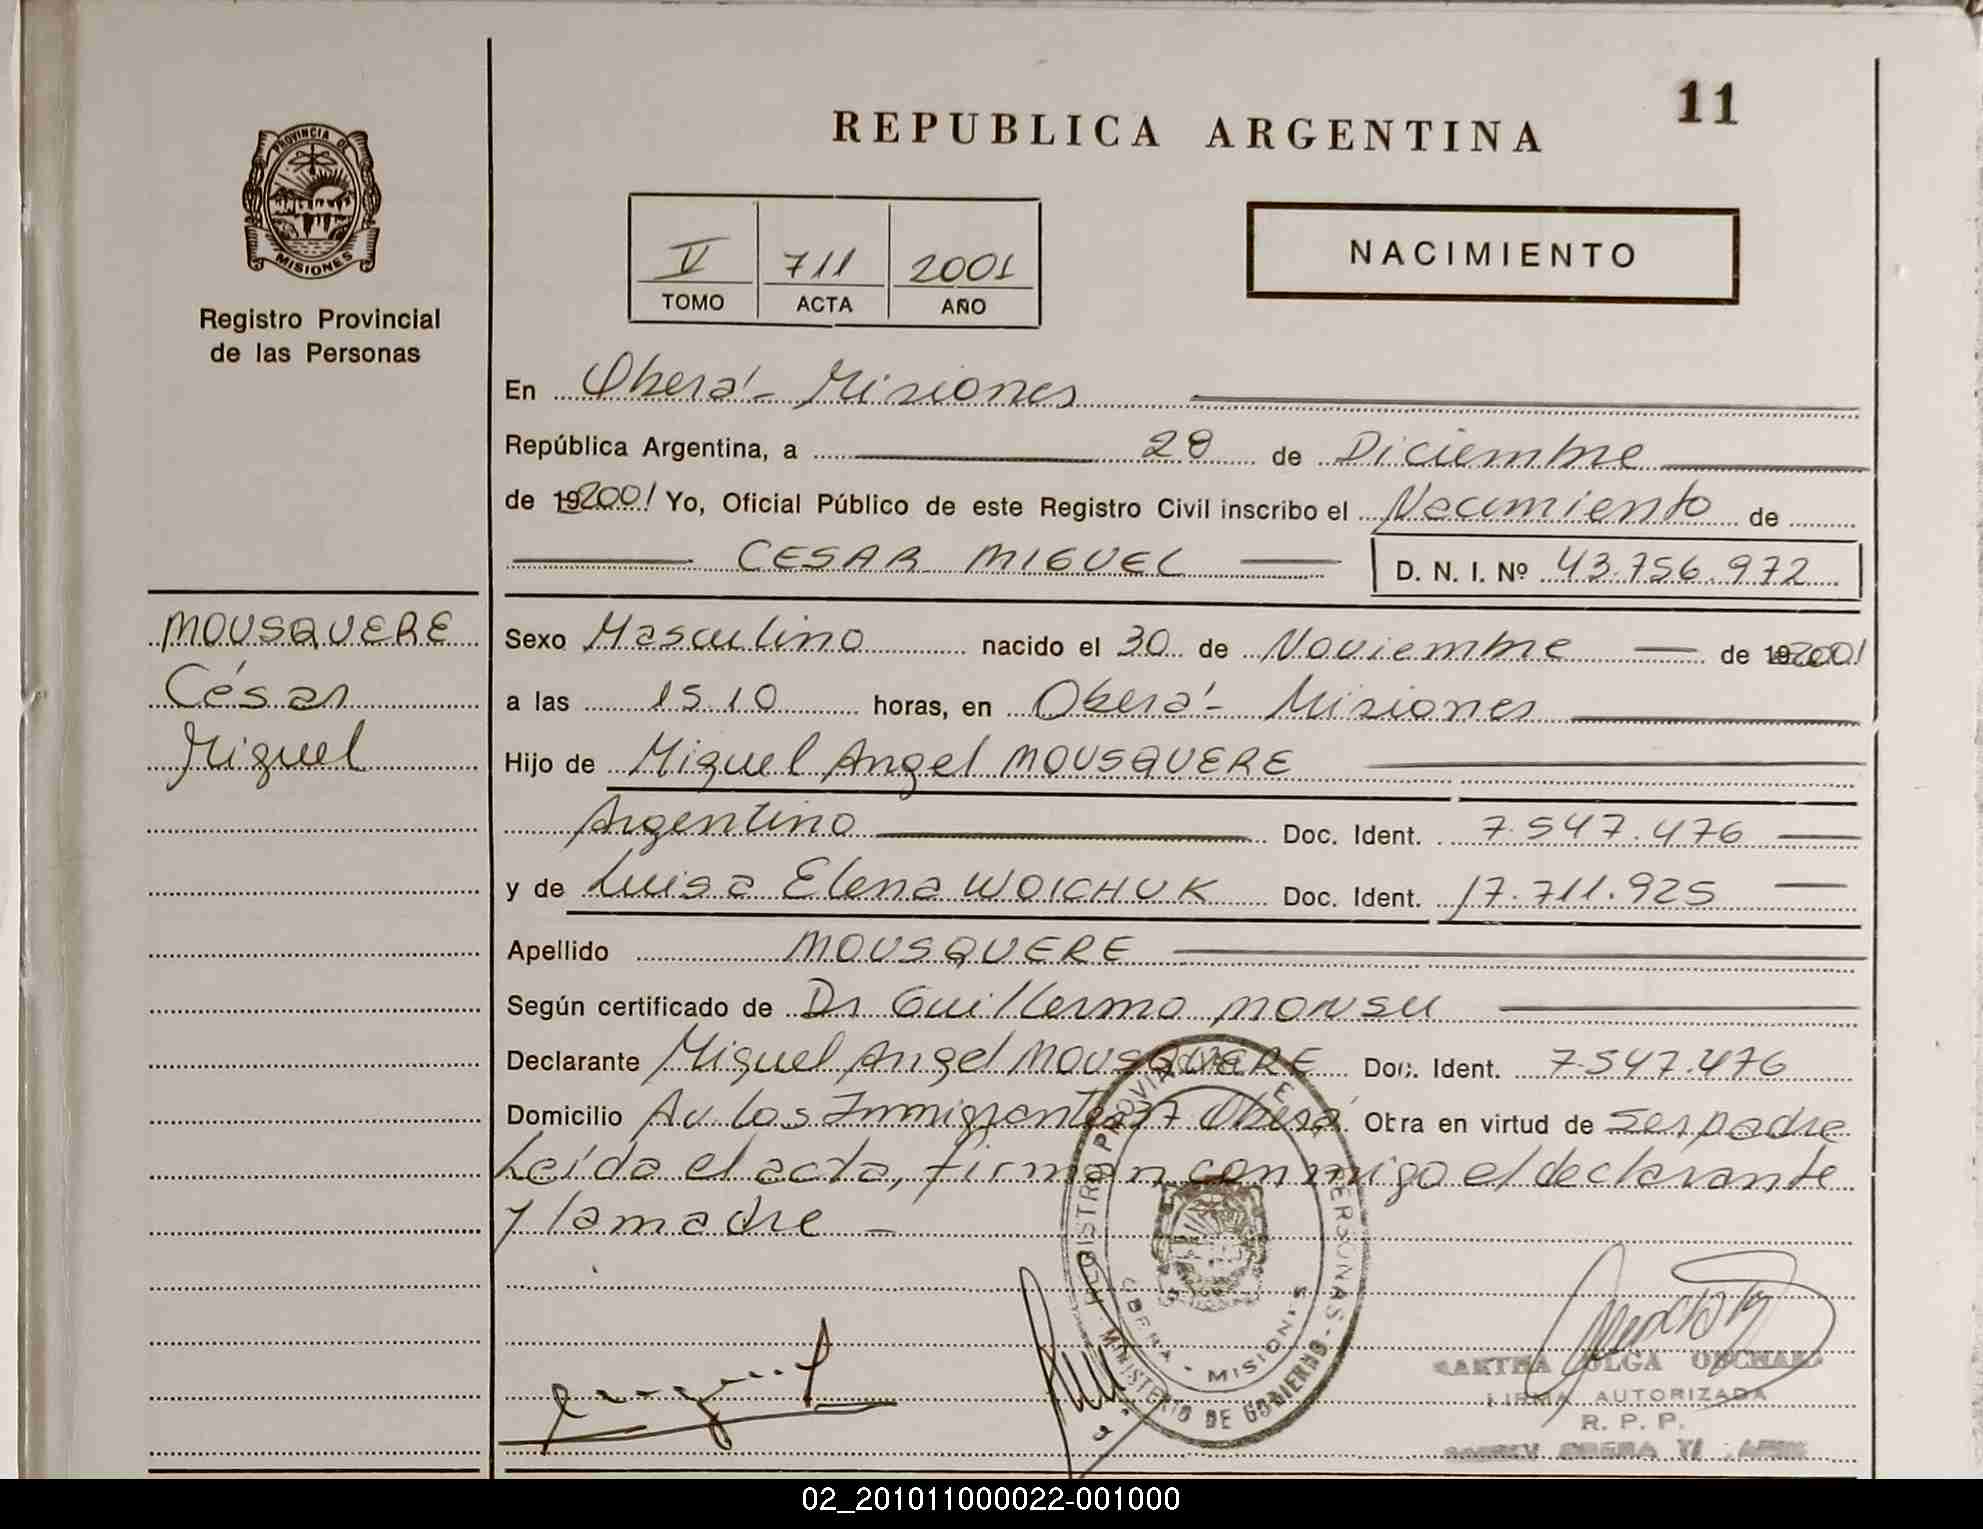 11
REPUBLICA ARGENTINA
PROVINCIA DE
MISIONES
Registro Provincial
de las Personas
V 711 2001
TOMO ACTA AÑO
NACIMIENTO
En Oberá - Misiones
República Argentina, a 28 de Diciembre
de 192001 Yo, Oficial Público de este Registro Civil inscribo el Nacimiento de
CESAR MIGUEL D. N. I. Nº 43.756.972
MOUSQUERE
César
Miguel
Sexo Masculino nacido el 30 de Noviembre de 192001
a las 15 10 horas, en Oberá - Misiones
Hijo de Miguel Angel MOUSQUERE
Argentino Doc. Ident. 7.547.476
y de Luisa Elena WOICHUK Doc. Ident. 17.711.925
Apellido MOUSQUERE
Según certificado de Dr Guillermo MONSU
Declarante Miguel Angel MOUSQUERE Doc. Ident. 7.547.476
Domicilio Av Los Inmigrantes Oberá Obra en virtud de ser padre
Leída el acta, firman conmigo el declarante
y la madre -
REGISTRO PROVINCIAL DE PERSONAS - MINISTERIO DE GOBIERNO
OBERA - MISIONES
MARTHA OLGA
FIRMA AUTORIZADA
R. P. P.
02_201011000022-001000